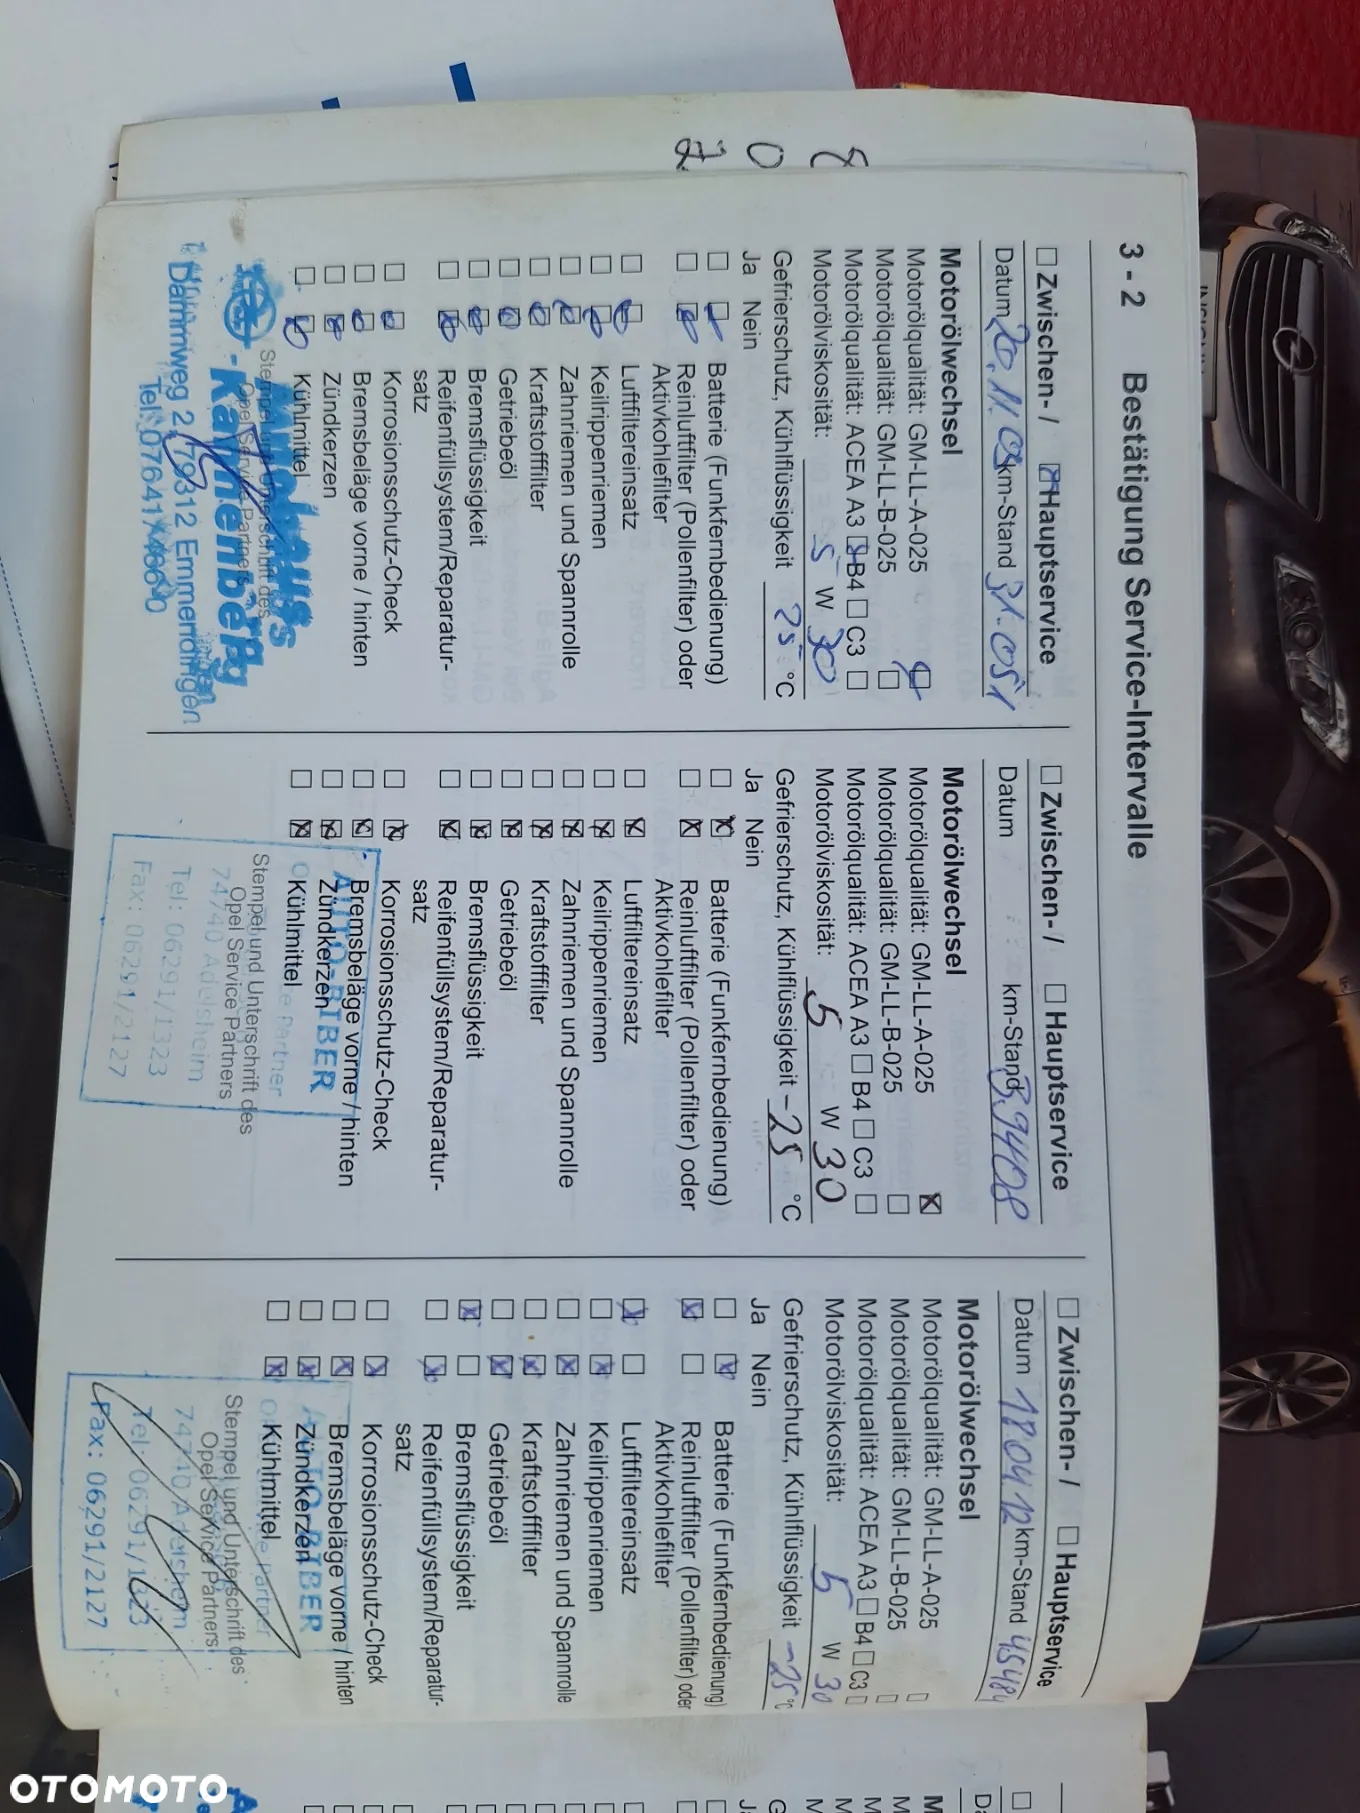 3 - 2 Bestätigung Service-Intervalle
Zwischen- / Hauptservice
Datum 20.11.09 km-Stand 31.051
Motorölwechsel
Motorölqualität: GM-LL-A-025
Motorölqualität: GM-LL-B-025
Motorölqualität: ACEA A3 B4 C3
Motorölviskosität: 5 W 30
Gefrierschutz, Kühlflüssigkeit 25 °C
Ja Nein
Batterie (Funkfernbedienung)
Reinluftfilter (Pollenfilter) oder
Aktivkohlefilter
Luftfiltereinsatz
Keilrippenriemen
Zahnriemen und Spannrolle
Kraftstofffilter
Getriebeöl
Bremsflüssigkeit
Reifenfüllsystem/Reparatur-
satz
Korrosionsschutz-Check
Bremsbeläge vorne / hinten
Zündkerzen
Kühlmittel
Stempel und Unterschrift des
Opel Service Partners
Autohaus
Kaltenberg
Dammweg 2, 79312 Emmendingen
Tel. 07641/4660
Zwischen- / Hauptservice
Datum km-Stand 39408
Motorölwechsel
Motorölqualität: GM-LL-A-025
Motorölqualität: GM-LL-B-025
Motorölqualität: ACEA A3 B4 C3
Motorölviskosität: 5 W 30
Gefrierschutz, Kühlflüssigkeit -25 °C
Ja Nein
Batterie (Funkfernbedienung)
Reinluftfilter (Pollenfilter) oder
Aktivkohlefilter
Luftfiltereinsatz
Keilrippenriemen
Zahnriemen und Spannrolle
Kraftstofffilter
Getriebeöl
Bremsflüssigkeit
Reifenfüllsystem/Reparatur-
satz
Korrosionsschutz-Check
Bremsbeläge vorne / hinten
Zündkerzen
Kühlmittel
AUTO-BIBER
Partner
Stempel und Unterschrift des
Opel Service Partners
74740 Adelsheim
Tel: 06291/1323
Fax: 06291/2127
Zwischen- / Hauptservice
Datum 18.04.12 km-Stand 45484
Motorölwechsel
Motorölqualität: GM-LL-A-025
Motorölqualität: GM-LL-B-025
Motorölqualität: ACEA A3 B4 C3
Motorölviskosität: 5 W 30
Gefrierschutz, Kühlflüssigkeit -25 °C
Ja Nein
Batterie (Funkfernbedienung)
Reinluftfilter (Pollenfilter) oder
Aktivkohlefilter
Luftfiltereinsatz
Keilrippenriemen
Zahnriemen und Spannrolle
Kraftstofffilter
Getriebeöl
Bremsflüssigkeit
Reifenfüllsystem/Reparatur-
satz
Korrosionsschutz-Check
Bremsbeläge vorne / hinten
Zündkerzen
Kühlmittel
AUTO-BIBER
Partner
Stempel und Unterschrift des
Opel Service Partners
74740 Adelsheim
Tel: 06291/1323
Fax: 06291/2127
OTOMOTO